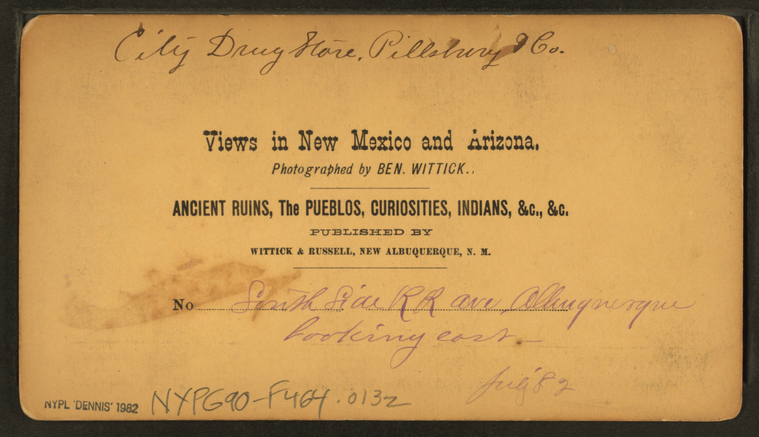 City Drug Store, Pillsbury & Co.
Views in New Mexico and Arizona.
Photographed by BEN. WITTICK..
ANCIENT RUINS, The PUEBLOS, CURIOSITIES, INDIANS, &c., &c.
PUBLISHED BY
WITTICK & RUSSELL, NEW ALBUQUERQUE, N. M.
No South Side R R ave Albuquerque
looking east
July 82
NYPL 'DENNIS' 1982 NYPG90-F464.0132